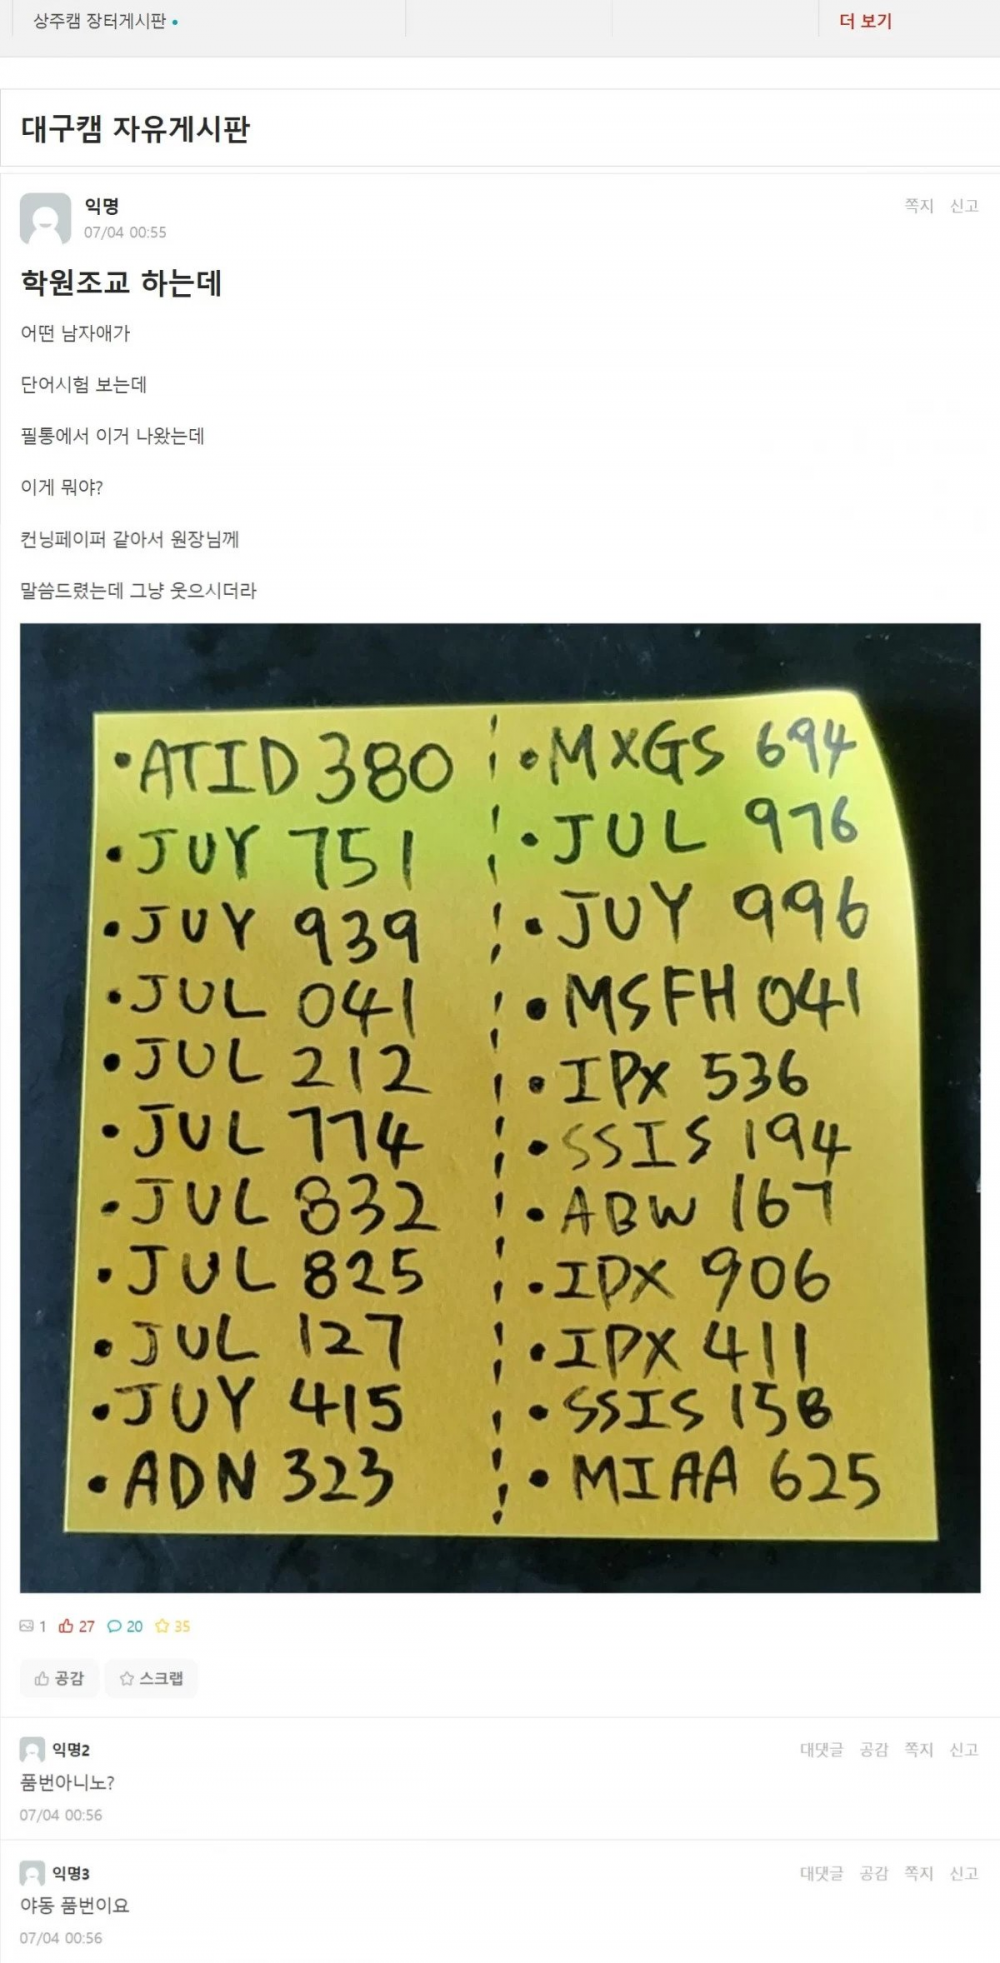 상주캠 장터게시판
더 보기
대구캠 자유게시판
익명
쪽지 신고
07/04 00:55
학원조교 하는데
어떤 남자애가
단어시험 보는데
필통에서 이거 나왔는데
이게 뭐야?
컨닝페이퍼 같아서 원장님께
말씀드렸는데 그냥 웃으시더라
•ATID 380
•JUY 751
•JUY 939
•JUL 041
•JUL 212
•JUL 774
•JUL 832
•JUL 825
•JUL 127
•JUY 415
•ADN 323
•MXGS 694
•JUL 976
•JUY 996
•MSFH 041
•IPX 536
•SSIS 194
•ABW 167
•IPX 906
•IPX 411
•SSIS 158
•MIAA 625
1 27 20 35
공감 스크랩
익명2
대댓글 공감 쪽지 신고
품번아니노?
07/04 00:56
익명3
대댓글 공감 쪽지 신고
야동 품번이요
07/04 00:56